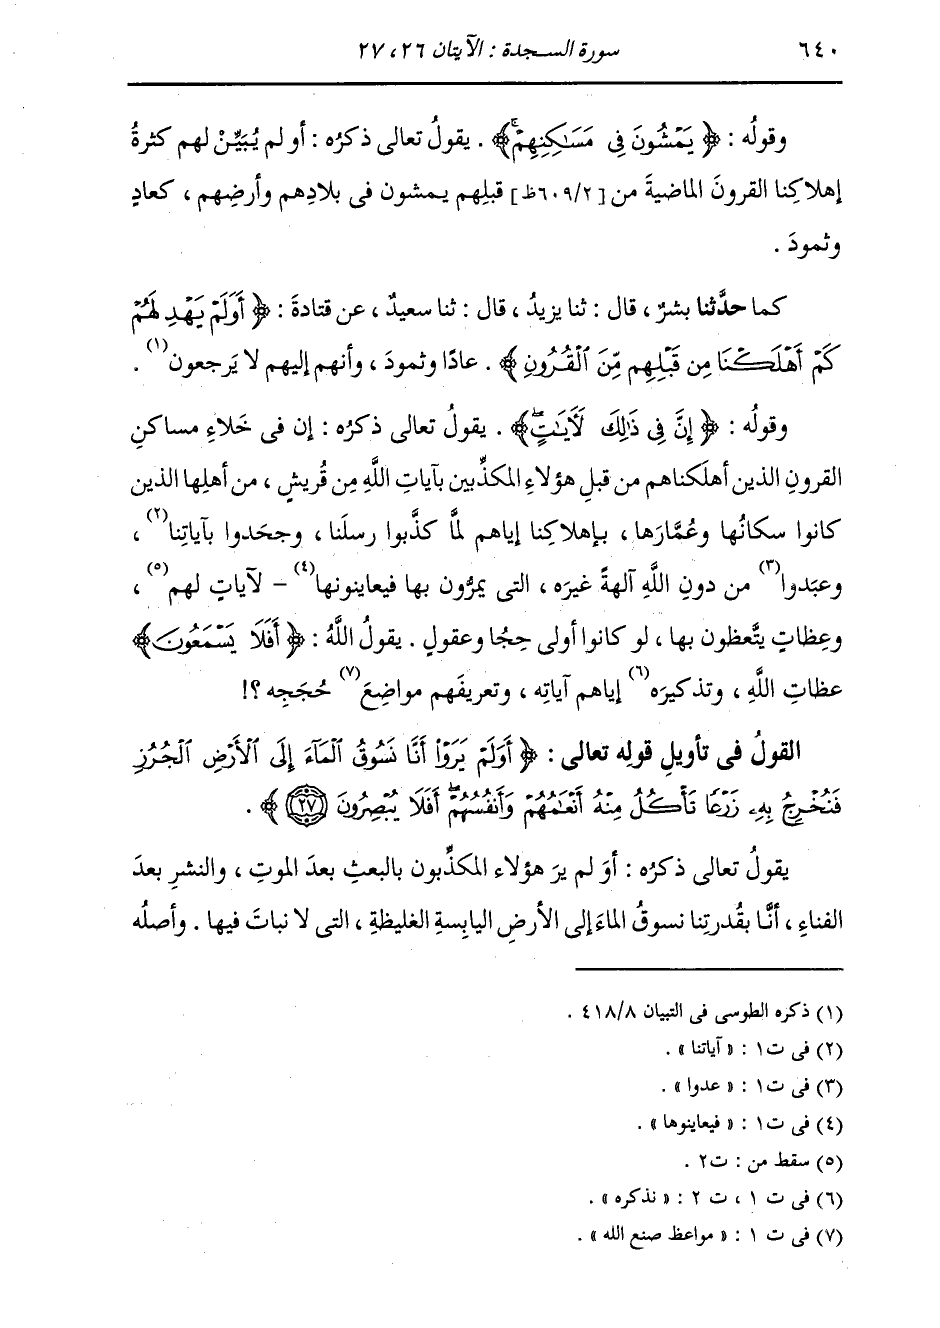 ٦٤٠ سورة السجدة : الآيتان ٢٦، ٢٧
وقولُه : ﴿ يَمْشُونَ فِى مَسَٰكِنِهِمْۚ ﴾ . يقولُ تعالى ذكرُه : أو لم يُبَيِّنْ لهم كثرةُ
إهلاكِنا القرونَ الماضيةَ من [٦٠٩/٢ظ] قبلِهم يمشون فى بلادِهم وأرضِهم ، كعادٍ
وثمودَ .
كما حدَّثنا بشرٌ ، قال : ثنا يزيدُ ، قال : ثنا سعيدٌ ، عن قتادةَ : ﴿ أَوَلَمْ يَهْدِ لَهُمْ
كَمْ أَهْلَكْنَا مِن قَبْلِهِم مِّنَ ٱلْقُرُونِ ﴾ . عادًا وثمودَ ، وأنهم إليهم لا يَرجعون(١) .
وقولُه : ﴿ إِنَّ فِى ذَٰلِكَ لَأٓيَٰتٍۖ ﴾ . يقولُ تعالى ذكرُه : إن فى خَلاءِ مساكنِ
القرونِ الذين أهلَكناهم من قبلِ هؤلاءِ المكذِّبين بآياتِ اللَّهِ مِن قُريشٍ ، من أهلِها الذين
كانوا سكانُها وعُمَّارَها ، بإهلاكِنا إياهم لمَّا كذَّبوا رسلَنا ، وجحَدوا بآياتِنا(٢) ،
وعبَدوا(٣) من دونِ اللَّهِ آلهةً غيرَه ، التى يمرُّون بها فيعاينونها(٤) – لآياتٍ لهم(٥) ،
وعِظاتٍ يتَّعظون بها ، لو كانوا أولى حِجًا وعقولٍ . يقولُ اللَّهُ : ﴿ أَفَلَا يَسْمَعُونَ ﴾
عظاتِ اللَّهِ ، وتذكيرَه(٦) إياهم آياتِه ، وتعريفَهم مواضِعَ(٧) حُجَجِه ؟!
القولُ فى تأويلِ قوله تعالى : ﴿ أَوَلَمْ يَرَوْا۟ أَنَّا نَسُوقُ ٱلْمَآءَ إِلَى ٱلْأَرْضِ ٱلْجُرُزِ
فَنُخْرِجُ بِهِۦ زَرْعًا تَأْكُلُ مِنْهُ أَنْعَٰمُهُمْ وَأَنفُسُهُمْۖ أَفَلَا يُبْصِرُونَ ٢٧ ﴾ .
يقولُ تعالى ذكره : أوَ لم يرَ هؤلاء المكذِّبون بالبعثِ بعدَ الموتِ ، والنشرِ بعدَ
الفناءِ ، أنَّا بقُدرتِنا نسوقُ الماءَ إلى الأرضِ اليابِسةِ الغليظةِ ، التى لا نباتَ فيها . وأصلُه
(١) ذكره الطوسى فى التبيان ٤١٨/٨ .
(٢) فى ت١ : « آياتنا » .
(٣) فى ت١ : « عدوا » .
(٤) فى ت١ : « فيعاينوها » .
(٥) سقط من : ت٢ .
(٦) فى ت ١ ، ت ٢ : « نذكره » .
(٧) فى ت ١ : « مواعظ صنع الله » .